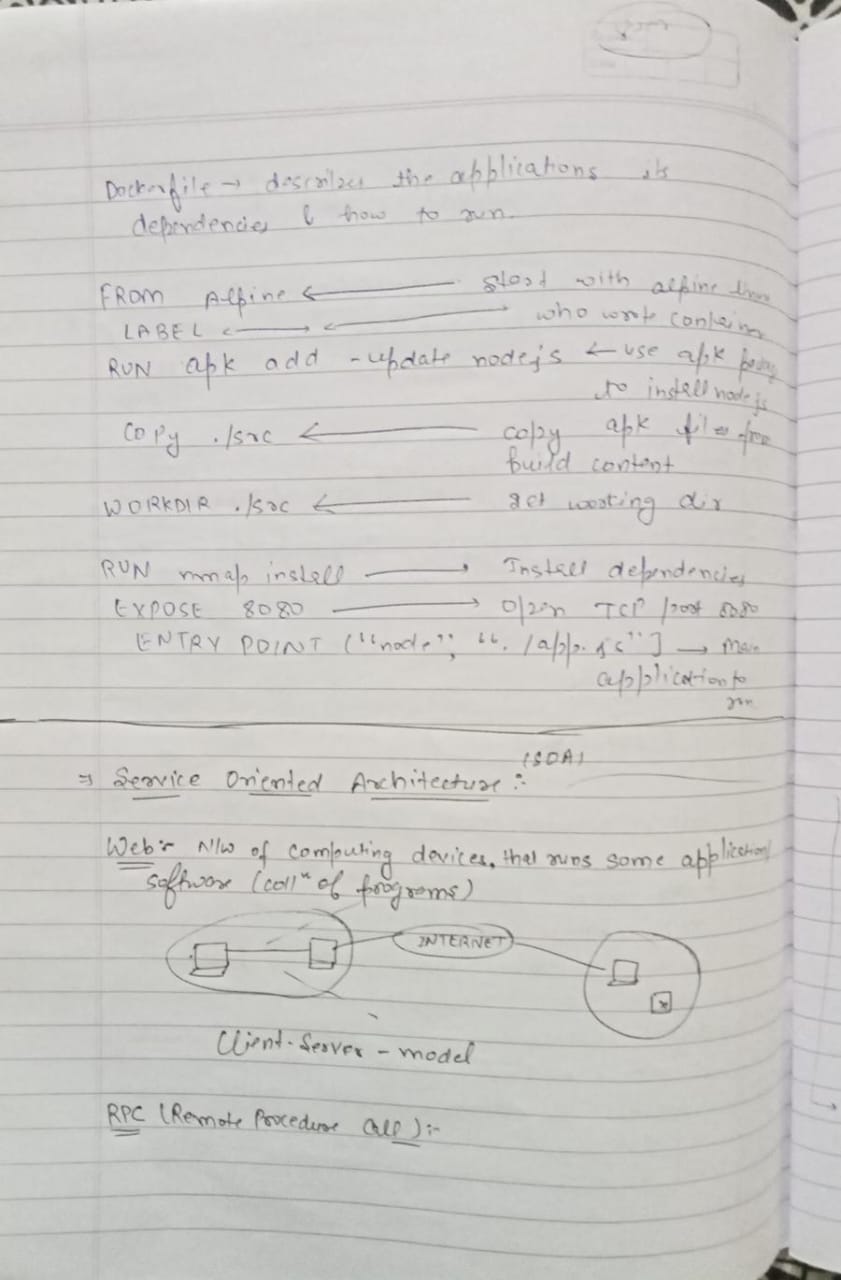 Dockerfile → describes the applications its
dependencies & how to run.
FROM Alpine ← Start with alpine
LABEL ← → ← who wrote container
RUN apk add -update nodejs ← use apk
to install nodejs
COPY ./src ← copy apk files from
build content
WORKDIR ./src ← set working dir
RUN install → Install dependencies
EXPOSE 8080 → Open TCP port 8080
ENTRY POINT ("node", "./app.js"] → main
application to
run
(SOA)
⇒ Service Oriented Architecture :-
Web :- N/W of computing devices, that runs some application
software (collⁿ of programs)
INTERNET
Client-Server-model
RPC (Remote Procedure Call) :-